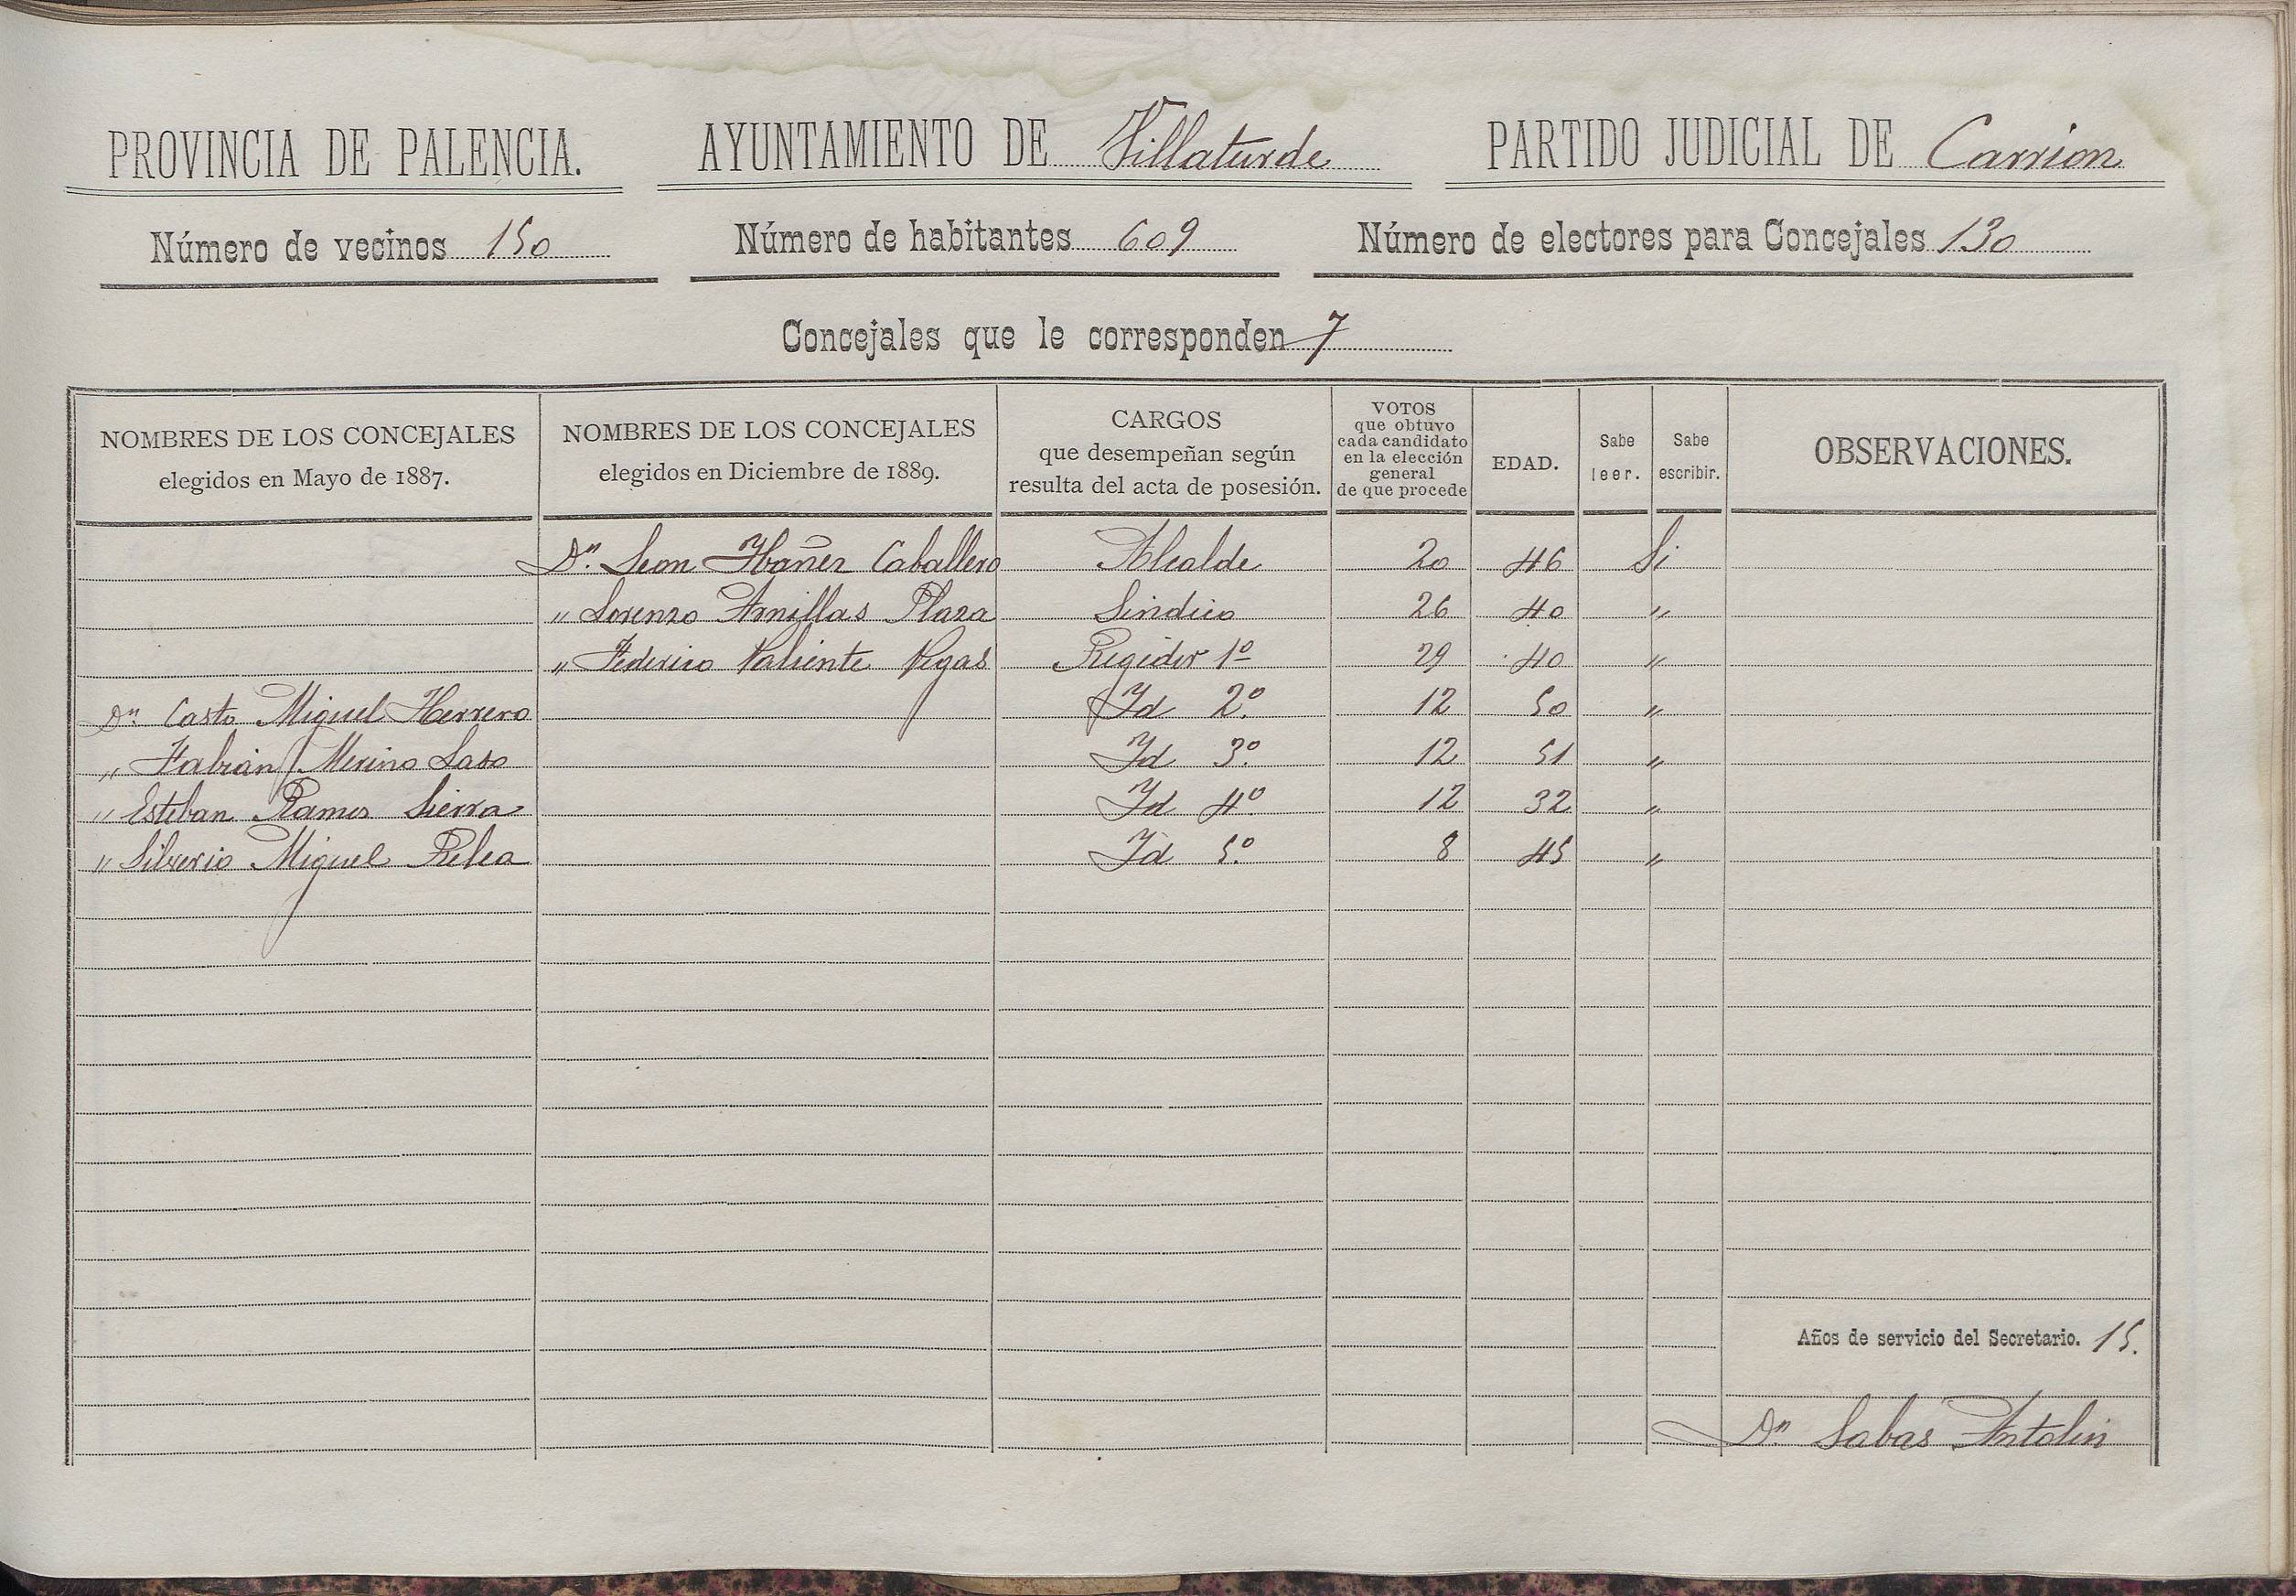 PROVINCIA DE PALENCIA. AYUNTAMIENTO DE Villaturde PARTIDO JUDICIAL DE Carrion
Número de vecinos 150 Número de habitantes 609 Número de electores para Concejales 130
Concejales que le corresponden 7
NOMBRES DE LOS CONCEJALES
elegidos en Mayo de 1887.
NOMBRES DE LOS CONCEJALES
elegidos en Diciembre de 1889.
CARGOS
que desempeñan según
resulta del acta de posesión.
VOTOS
que obtuvo
cada candidato
en la elección
general
de que procede
EDAD.
Sabe
leer.
Sabe
escribir.
OBSERVACIONES.
Dn. Leon Ibañez Caballero Alcalde 20 46 Si
" Lorenzo Arnillas Plaza Sindico 26 40 "
" Federico Valiente Vegas Regidor 1º 29 40 "
Dn. Casto Miguel Herrero Id 2º. 12 50 "
" Fabian Merino Laso Id 3º. 12 51 "
" Esteban Ramos Sierra Id 4º. 12 32 "
" Silverio Miguel Relea Id 5º. 8 45 "
Años de servicio del Secretario. 15.
Dn Sabas Antolin